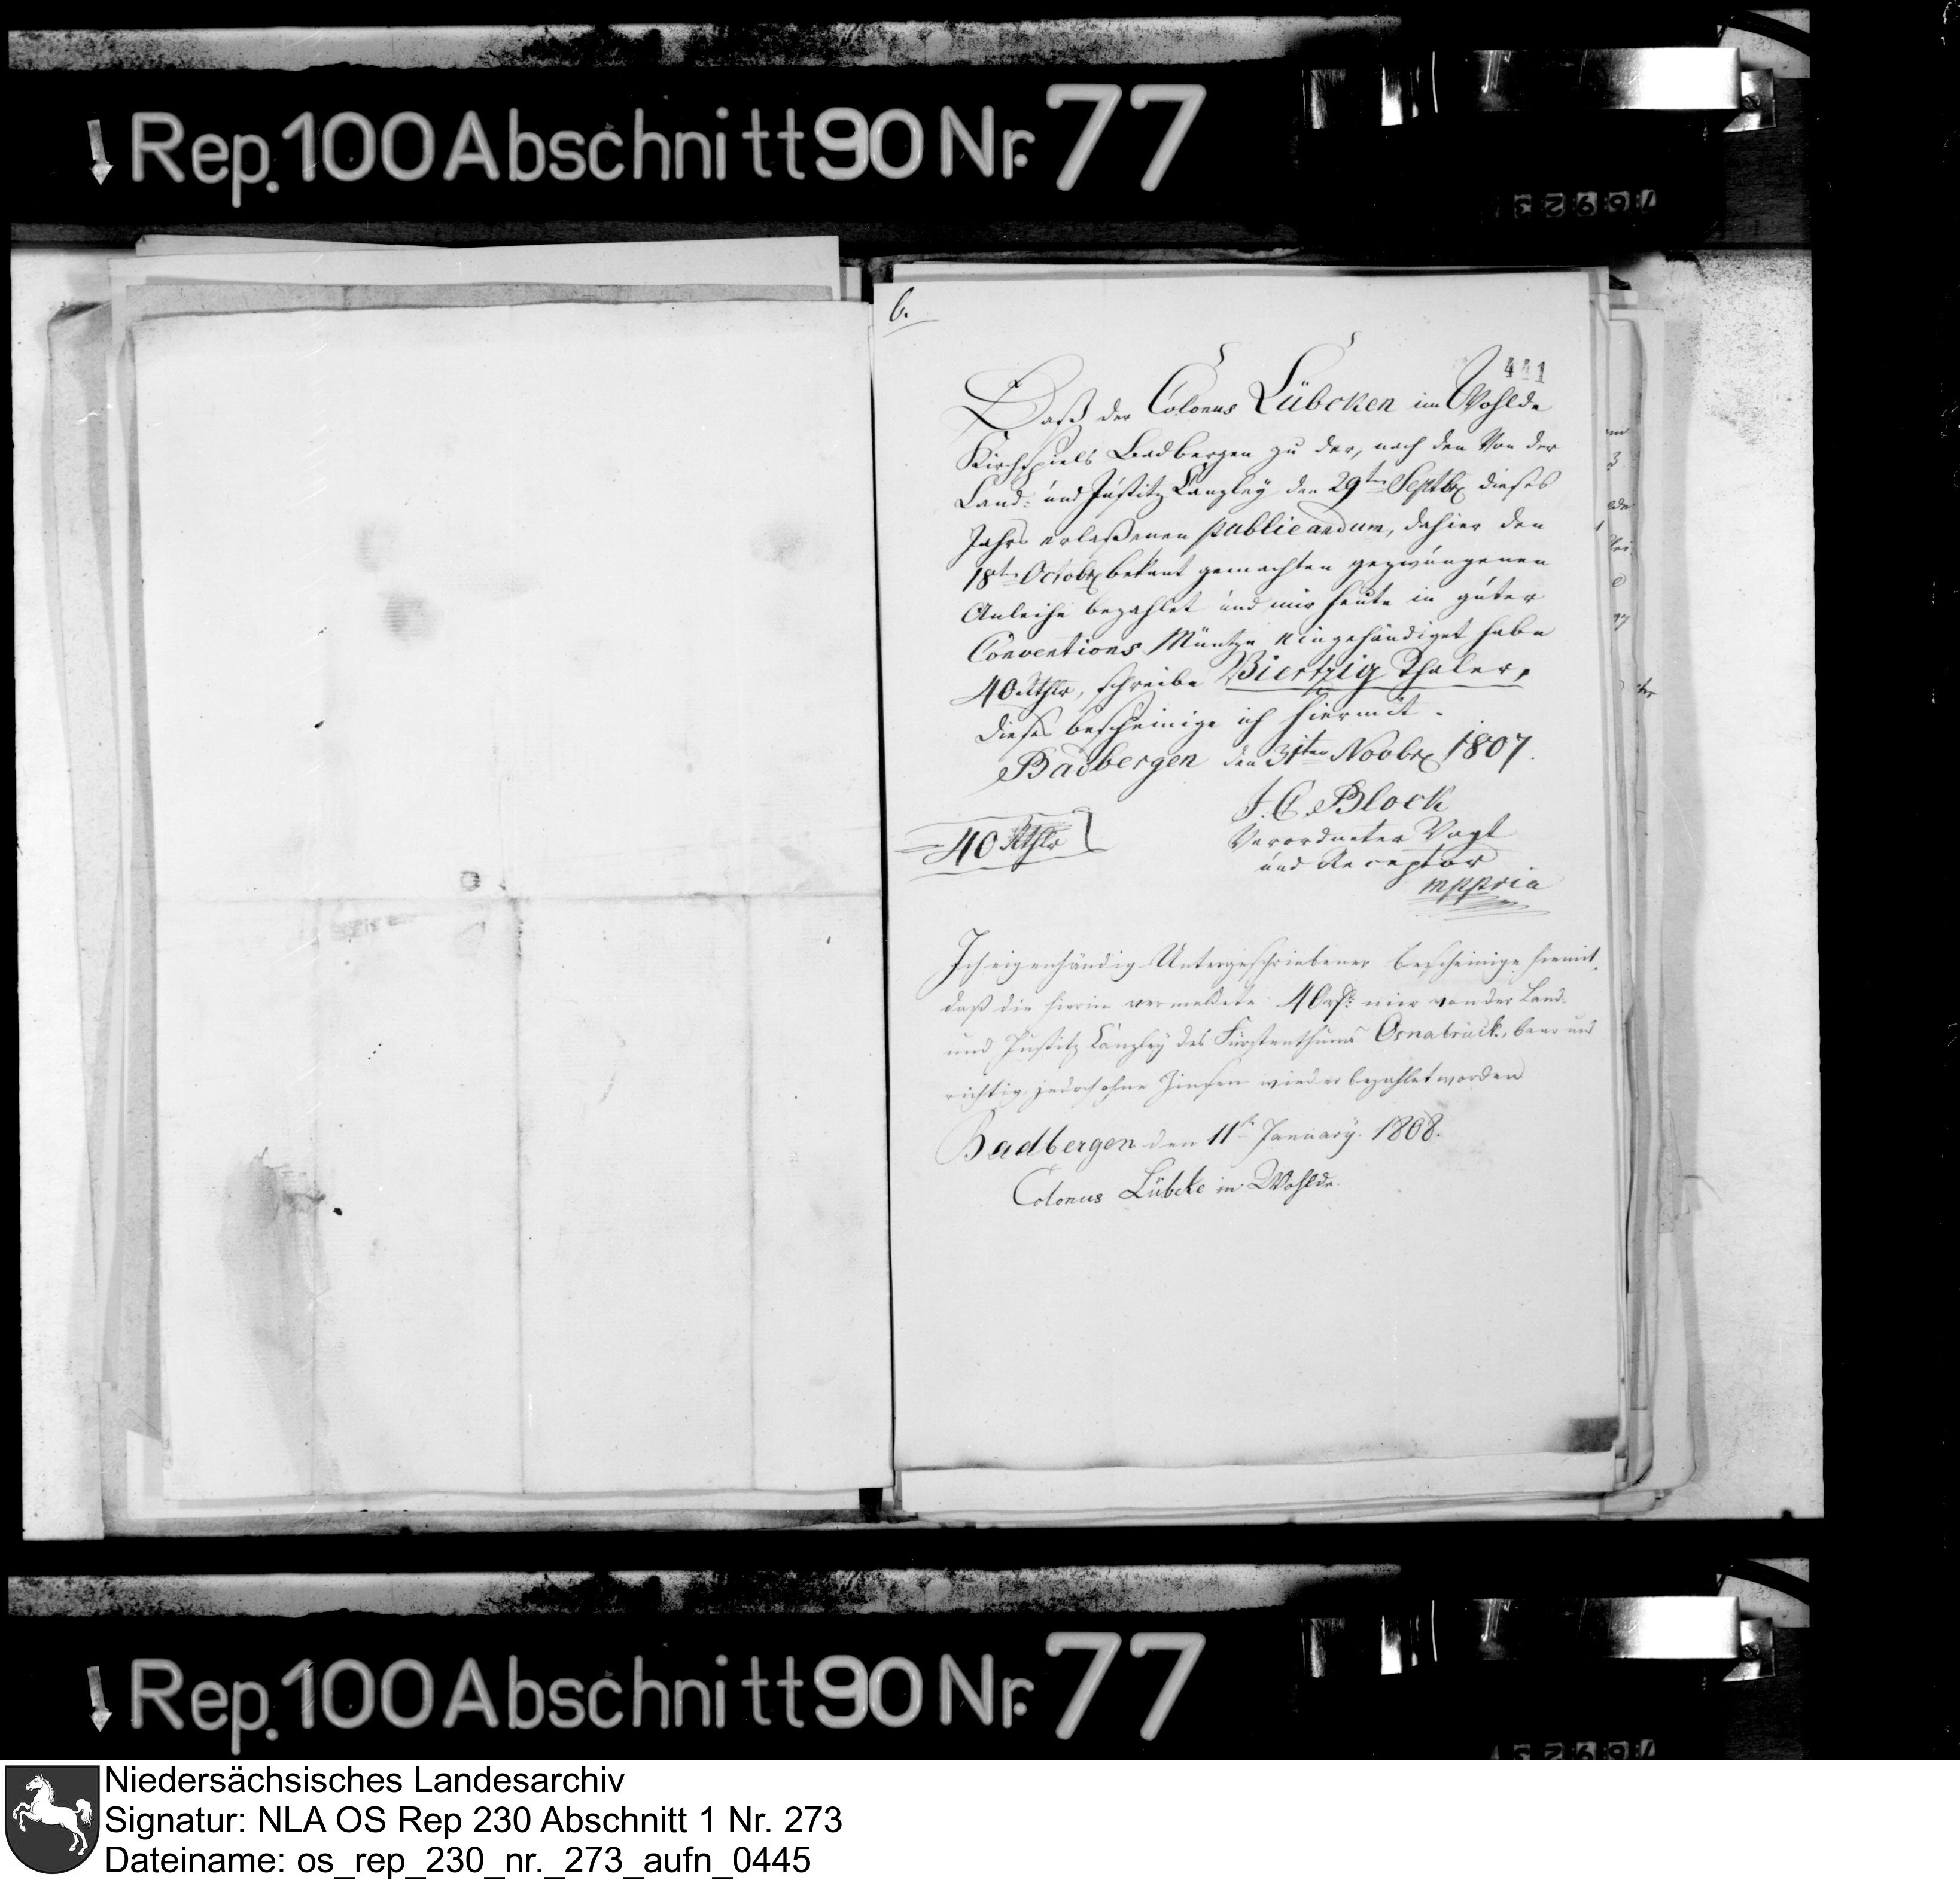 Rep. 100 Abschnitt 90 Nr. 77
b.
441
Daß der Colonus Lübcken im Wohlde
Kirchspiels Badbergen zu der, nach den von der
Land- und Justitz Canzley den 29ten Septbr dieses
Jahrs erlaßenen publicandum, dahier den
18ten Octobr bekant gemachten gezwungenen
Anleihe bezahlet und mir heute in guter
Conventions Müntze eingehändiget habe
40 Rthlr, schreibe Viertzig Thaler,
dieses bescheinige ich hiermit.
Badbergen den 31ten Novbr 1807.
J. C. Block
Verordneter Vogt
und Receptor
mppria
40 Rthlr
Ich eigenhändig Untergeschriebener bescheinige hiemit,
daß die hierin vermeldete 40 rth: mir von der Land-
und Justitz Canzley des Fürstenthums Osnabrück, baar und
richtig, jedoch ohne Zinsen wieder bezahlet worden
Badbergen den 11ten January. 1808.
Colonus Lübcke im Wohlde.
Rep. 100 Abschnitt 90 Nr. 77
Niedersächsisches Landesarchiv
Signatur: NLA OS Rep 230 Abschnitt 1 Nr. 273
Dateiname: os_rep_230_nr._273_aufn_0445